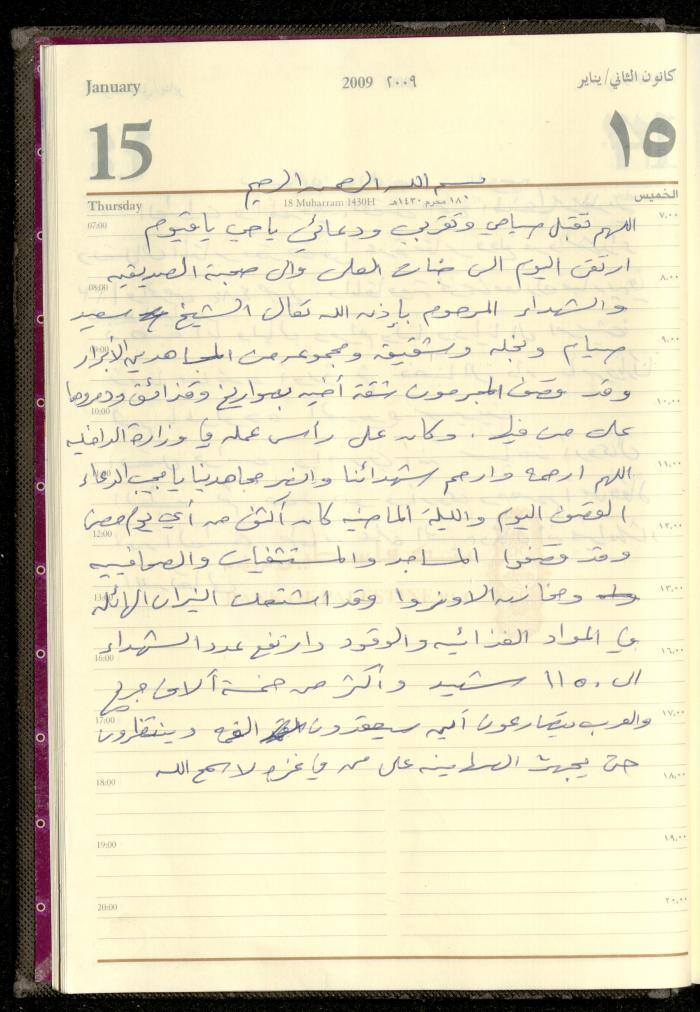 January
2009 ٢٠٠٩
كانون الثاني/يناير
15
١٥
بسم الله الرحمن الرحيم
Thursday
18 Muharram 1430H
١٨ محرم ١٤٣٠هـ
الخميس
07:00 اللهم تقبل صيامي وتقربي ودعائي يا حي يا قيوم ٧,٠٠
08:00 ارتقى اليوم الى جنات العلى والى صحبة الصديقين ٨,٠٠
والشهداء المرحوم بإذن الله تعالى الشيخ سعيد
09:00 صيام ونجله وشقيقه ومجموعه من المجاهدين الأبرار ٩,٠٠
وقد قصف المجرمون شقة أخيه بصواريخ وقذائق ودمروها
10:00 على من فيها . وكان على رأس عمله في وزارة الداخليه ١٠,٠٠
11:00 اللهم ارحمه وارحم شهدائنا وانصر مجاهدينا يا مجيب الدعاء ١١,٠٠
القصف اليوم والليلة الماضيه كان أكثف من أي يوم مضى
12:00 وقد قصفوا المساجد والمستشفيات والصحافيين ١٢,٠٠
13:00 ومخازن الاونروا وقد اشتعلت النيران الهائله ١٣,٠٠
في المواد الغذائيه والوقود وارتفع عدد الشهداء
16:00 الى ١١٥٠ شهيد وأكثر من خمسة آلاف جريح ١٦,٠٠
17:00 والعرب يتصارعون أين سيعقدون القمه وينتظرون ١٧,٠٠
حتى يجهز الصهاينه على من في غزه لا سمح الله
18:00 ١٨,٠٠
19:00 ١٩,٠٠
20:00 ٢٠,٠٠